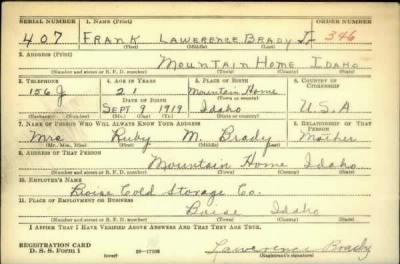 SERIAL NUMBER 1. NAME (Print)
407 FRANK LAWERENCE BRADY Jr. 346
(First) (Middle) (Last)
2. ADDRESS (Print)
MOUNTAIN HOME IDAHO
(Number and street or R. F. D. number) (Town) (County) (State)
3. TELEPHONE 4. AGE IN YEARS 5. PLACE OF BIRTH 6. COUNTRY OF CITIZENSHIP
156 J 21 Mountain Home
DATE OF BIRTH (Town or county)
SEPT 9 1919 Idaho U.S.A
(Exchange) (Number) (Mo.) (Day) (Yr.) (State or country)
7. NAME OF PERSON WHO WILL ALWAYS KNOW YOUR ADDRESS 8. RELATIONSHIP OF THAT PERSON
Mrs Ruby M. Brady Mother
(Mr., Mrs., Miss) (First) (Middle) (Last)
9. ADDRESS OF THAT PERSON
Mountain Home Idaho
(Number and street or R. F. D. number) (Town) (County) (State)
10. EMPLOYER'S NAME
Boise Cold Storage Co.
11. PLACE OF EMPLOYMENT OR BUSINESS
Boise Idaho
(Number and street or R. F. D. number) (Town) (County) (State)
I AFFIRM THAT I HAVE VERIFIED ABOVE ANSWERS AND THAT THEY ARE TRUE.
REGISTRATION CARD
D. S. S. Form 1 Lawerence Brady
(Registrant's signature)